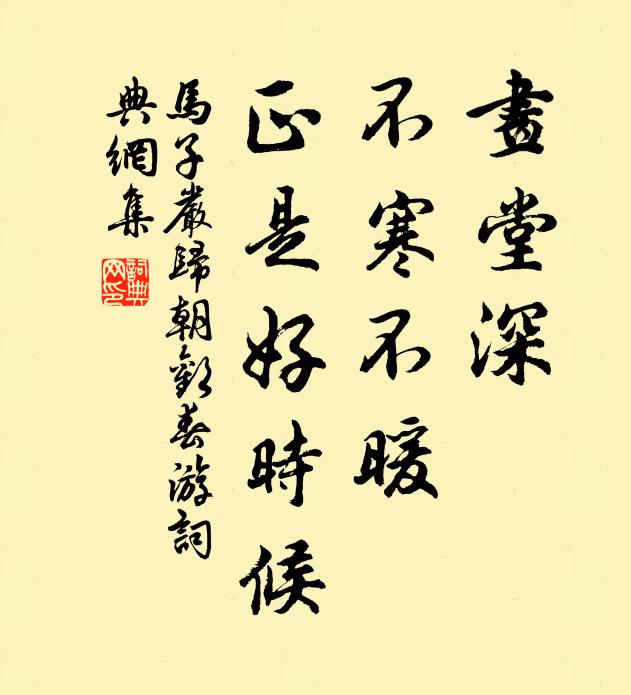 畫堂深
不寒不暖
正是好時候
馬子嚴歸朝歡春游詞
典網集
詞典
网印